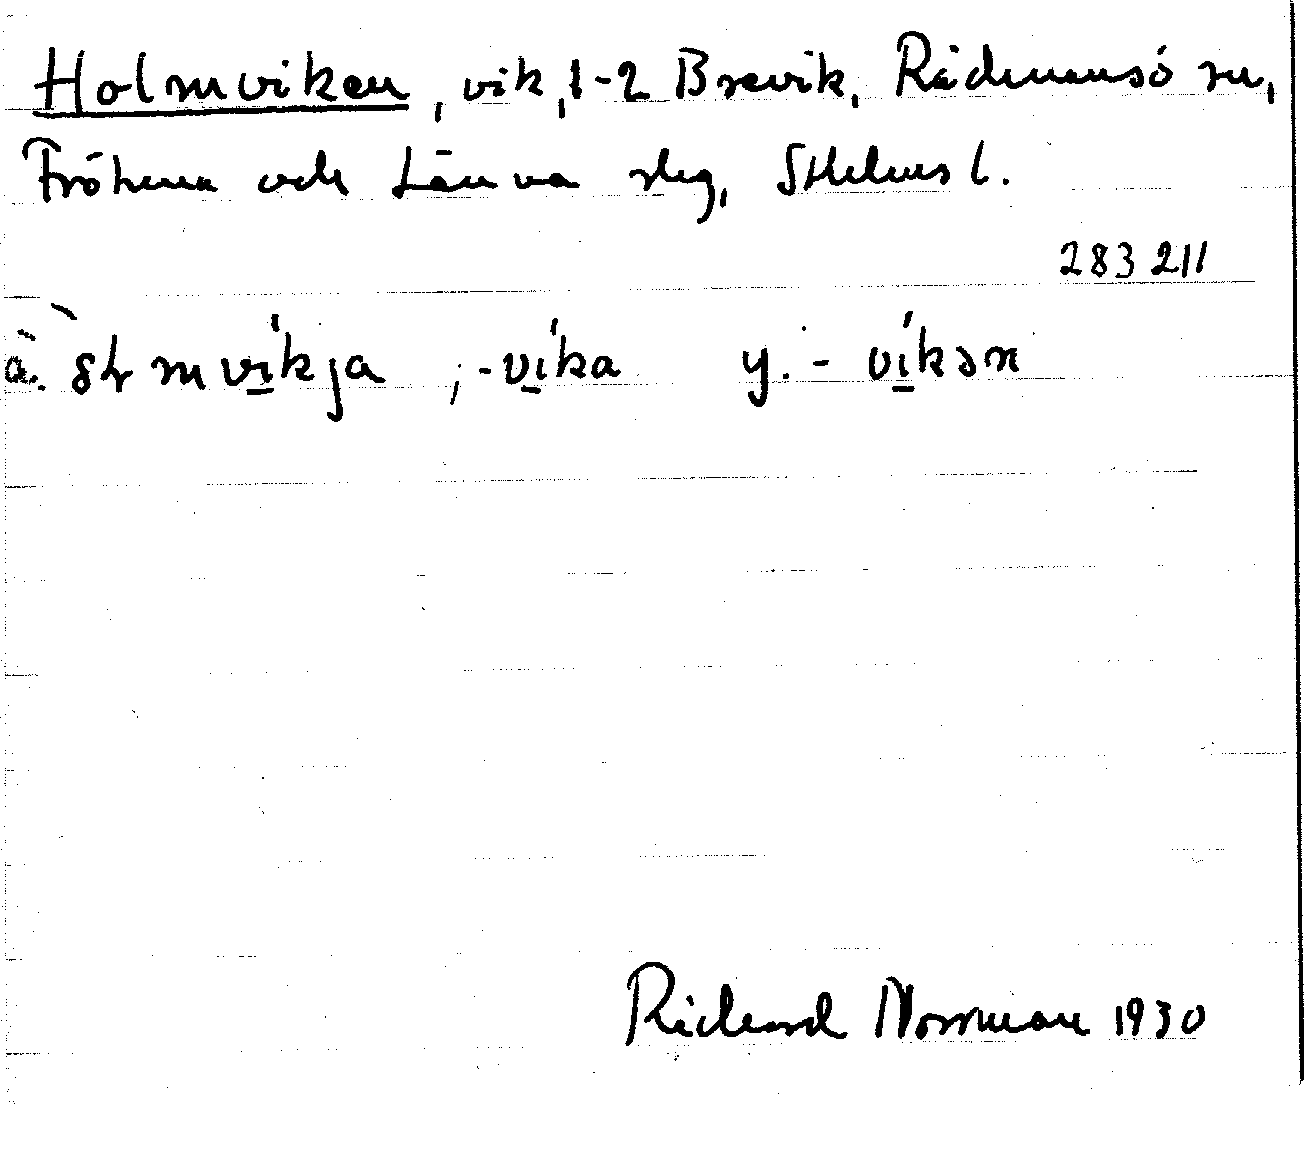 Holmviken, vik, 1-2 Brevik, Rådmansö sn,
Frötuna och Länna slg, Sthlms l.
283 211
ä. vìkja, -vìka y. - vìkən
Richard Norrman 1930